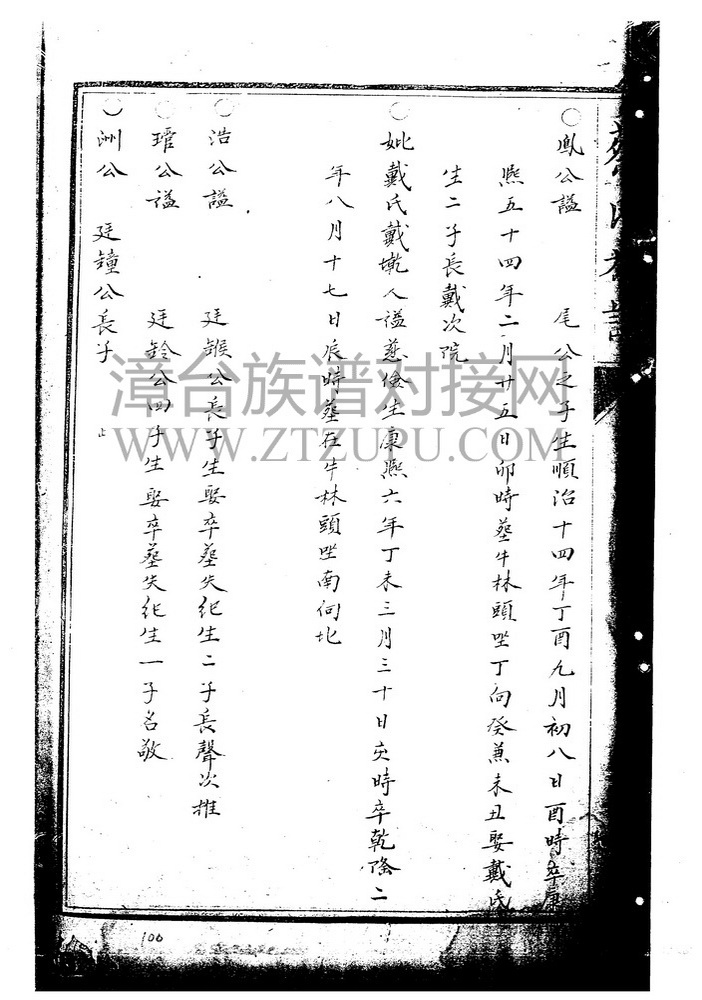 鳳公謚 尾公之子生順治十四年丁酉九月初八日酉時卒康
熙五十四年二月廿五日卯時塟牛林頭坐丁向癸兼未丑娶戴氏
生二子長戴次院
妣戴氏戴墘人謚慈儉生康熙六年丁未三月三十日亥時卒乾隆二
年八月十七日辰時塟在牛林頭坐南向北
浩公謚 廷鍭公長子生娶卒塟失紀生二子長聲次推
琯公謚 廷鈴公四子生娶卒塟失紀生一子名敬
洲公 廷鐘公長子 止
漳台族谱对接网
WWW.ZTZUPU.COM
100